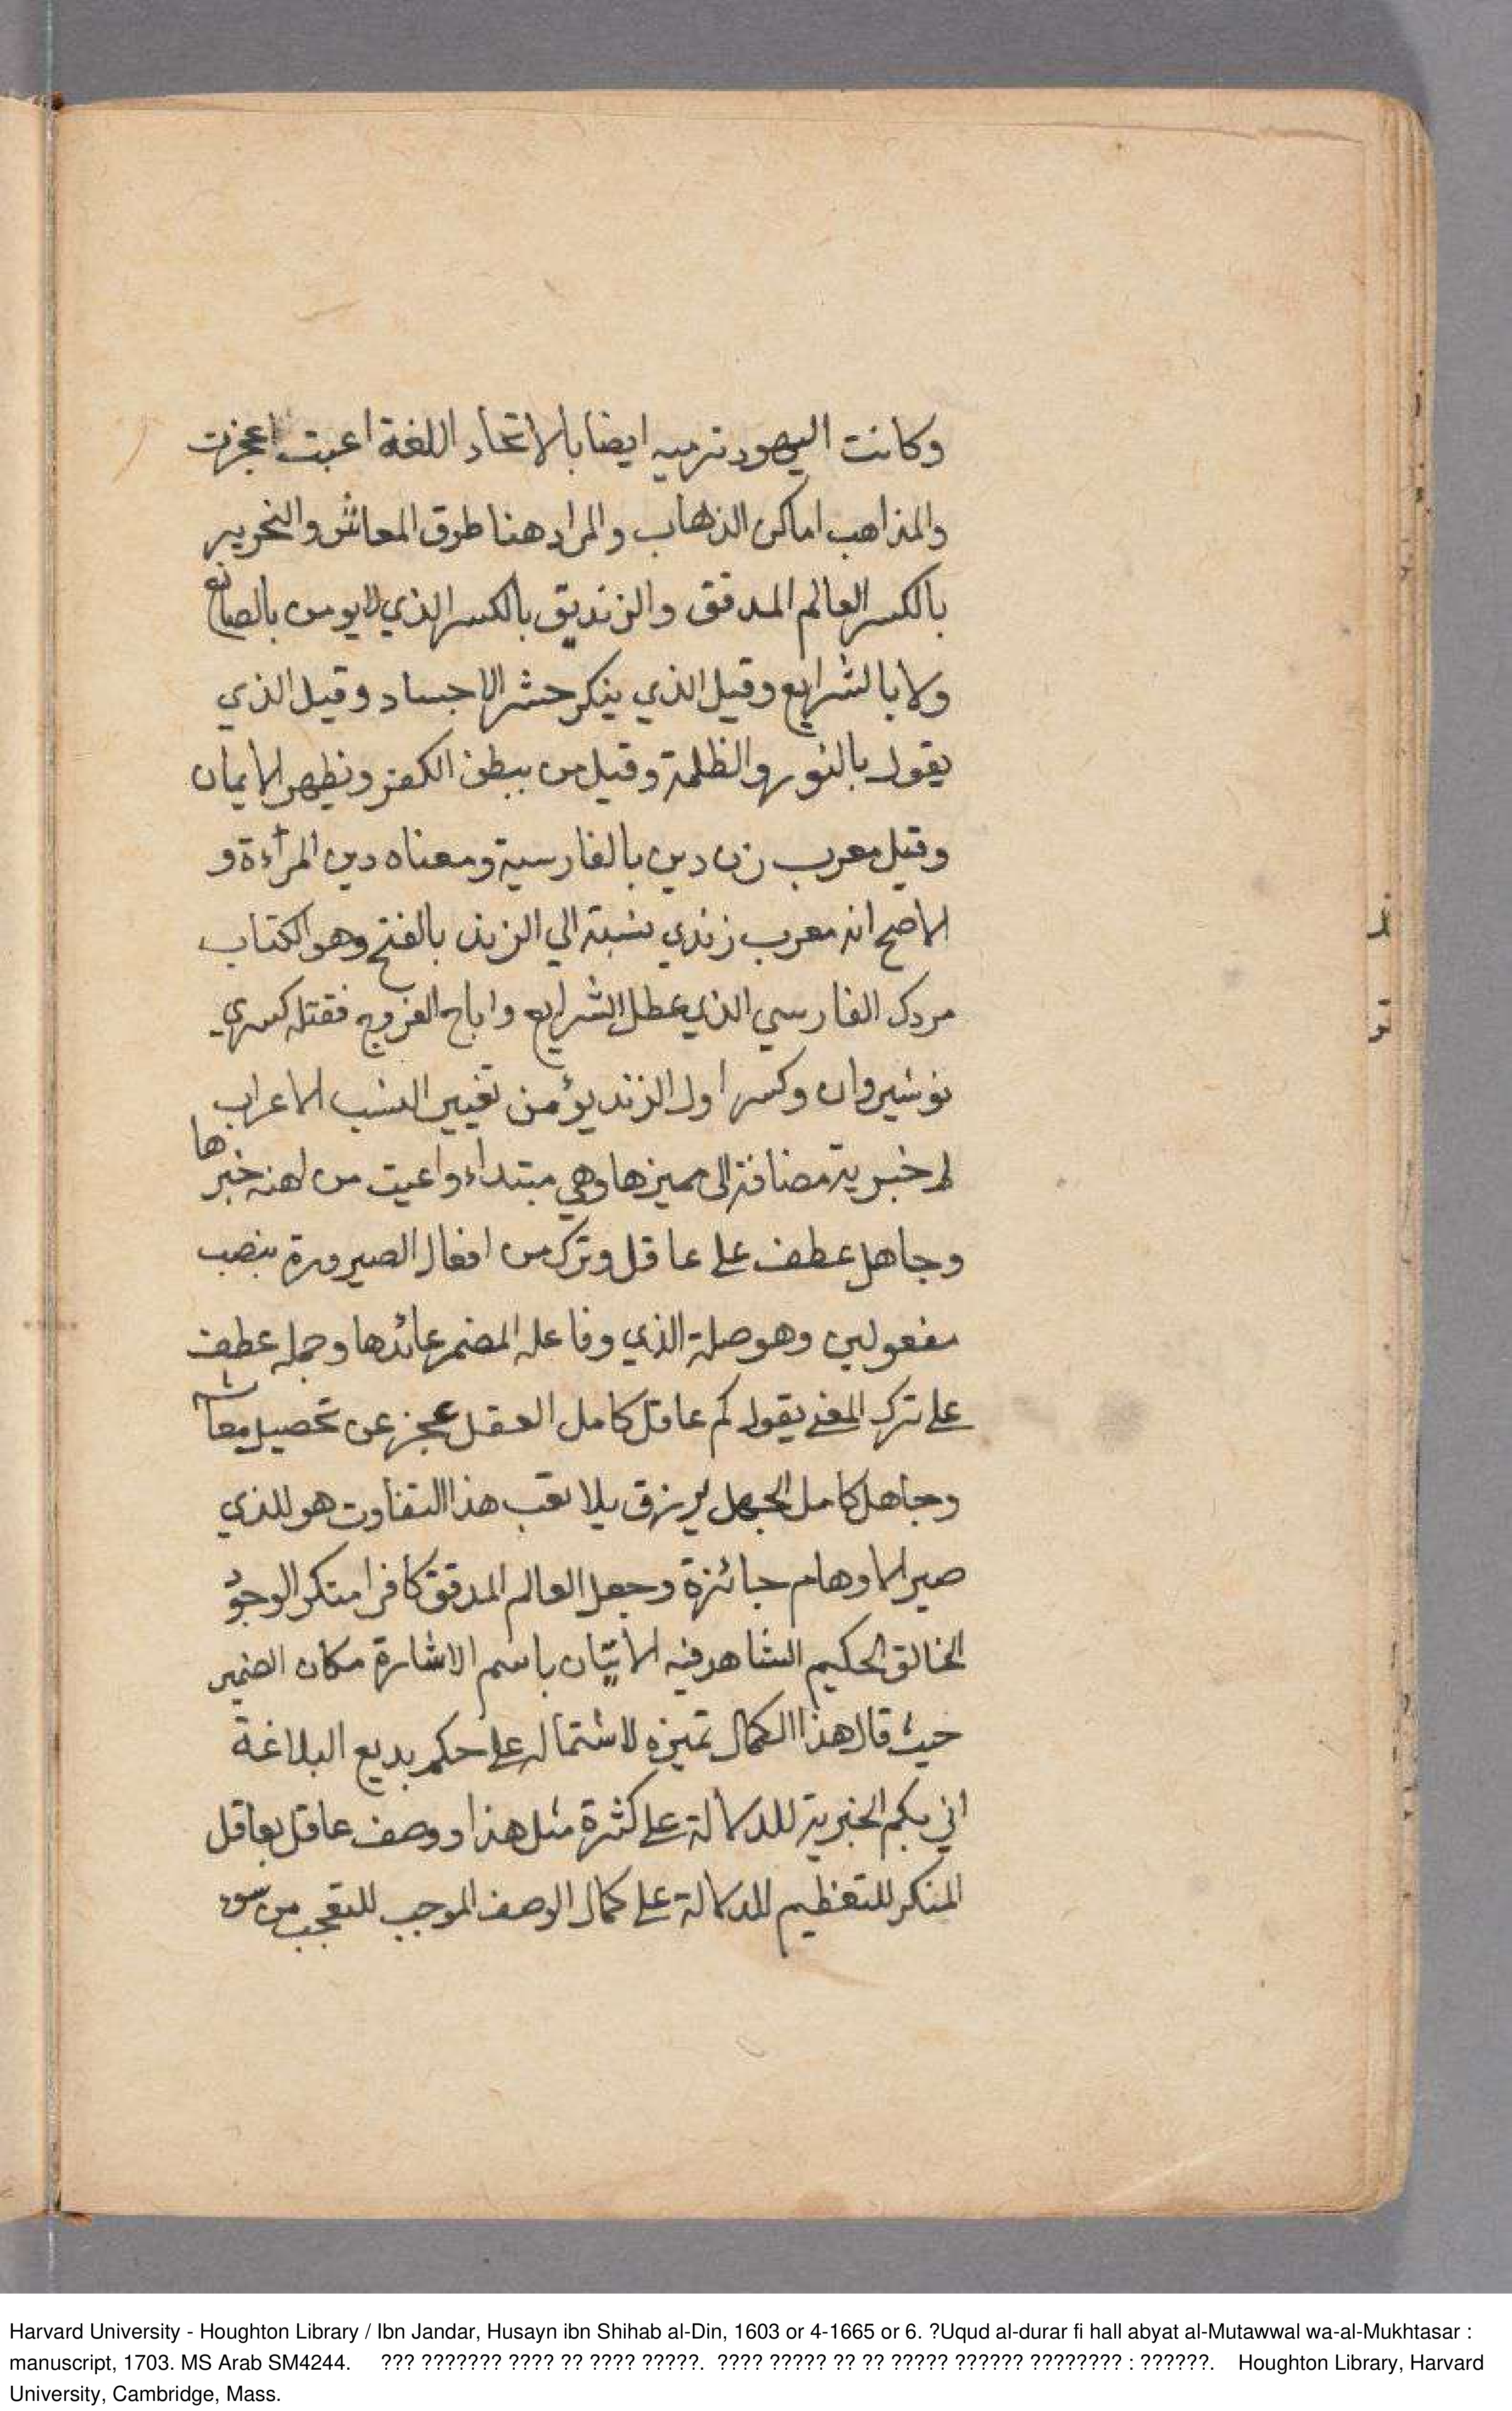 وكانت اليهود ترميه ايضا بالاتحاد اللغة اعيت اعجزت
والمذاهب اماكن الذهاب والمراد هنا طرق المعاش والنحرير
بالكسر العالم المدقق والزنديق بالكسر الذي لا يومن بالصانع
ولا بالشرايع وقيل الذي ينكر حشر الاجساد وقيل الذي
يقول بالنور والظلمة وقيل من يبطن الكفر ويظهر الايمان
وقيل معرب زن دين بالفارسية ومعناه دين المرأءة و
الاصح انه معرب زندي نسبة الي الزند بالفتح وهو الكتاب
مردك الفارسي الذي عطل الشرايع واباح الفروج فقتله كسري
نوشيروان وكسر اول الزنديق من تغيير النسب الاعراب
كم خبرية مضافة الى مميزها وهي مبتداء واعيت من خبرها
وجاهل عطف على عاقل وترك من افعال الصيرورة ينصب
مفعولين وهو صلة الذي وفاعله المضمر عائدها وجملة عطف
على ترك المعنى يقول كم عاقل كامل العقل عجز عن تحصيل معاشه
وجاهل كامل الجهل يرزق بلا تعب هذا التفاوت هو الذي
صير الاوهام حائرة وجعل العالم المدقق كافرا منكر الوجود
الخالق الحكيم الشاهد فيه الاتيان باسم الاشارة مكان الضمير
حيث قال هذا الكمال تميزه لاشتماله على حكم بديع البلاغة
اتي بكم الخبرية للدلالة على كثرة مثل هذا ووصف عاقل بعاقل
المنكر للتعظيم للدلالة على كمال الوصف الموجب للتعجب من سو
Harvard University - Houghton Library / Ibn Jandar, Husayn ibn Shihab al-Din, 1603 or 4-1665 or 6. ?Uqud al-durar fi hall abyat al-Mutawwal wa-al-Mukhtasar :
manuscript, 1703. MS Arab SM4244. ??? ??????? ???? ?? ???? ?????. ???? ????? ?? ?? ????? ?????? ???????? : ??????. Houghton Library, Harvard
University, Cambridge, Mass.